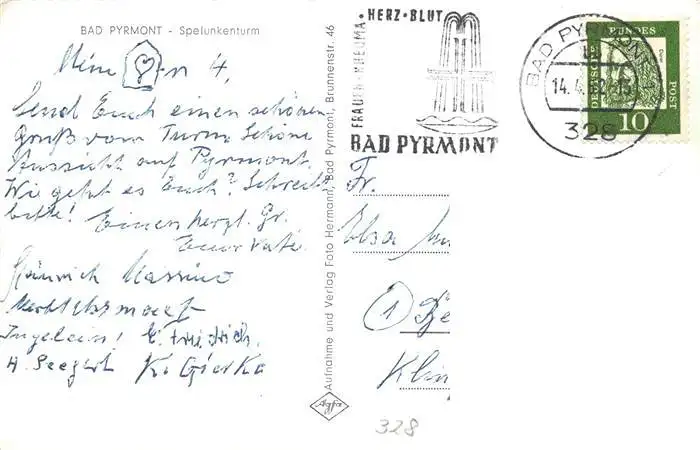 BAD PYRMONT - Spelunkenturm
4,
Send Euch einen schönen
Gruß vom Turm. Schöne
Aussicht auf Pyrmont.
Wie geht es Euch? Schreibt
bitte! Einen herzl. Gr.
Euer Vati.
Ingelein! E. Friedrich,
H. Seegert K. Gierke
Aufnahme und Verlag Foto Hermann, Bad Pyrmont, Brunnenstr. 46
Agfa
FRAUEN·RHEUMA·HERZ·BLUT
BAD PYRMONT
BAD PYRMONT
14.4.
328
DEUTSCHE BUNDESPOST
10
Fr.
Elsa
1
Klin
328